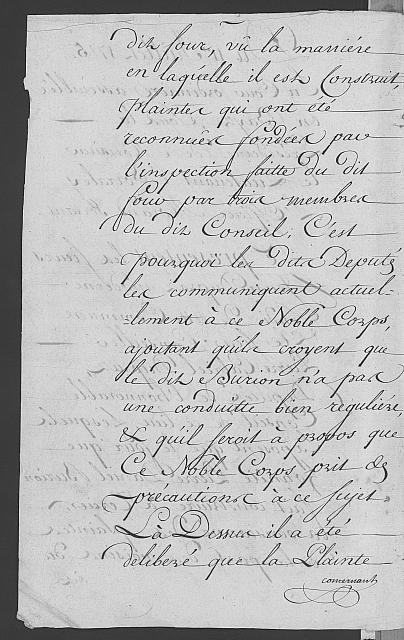 dit four, vû la maniére
en laquelle il est Construit,
Plaintes qui ont été
reconnuës fondées par
l'inspection faitte du dit
four par trois membres
du dit Conseil. C'est
pourquoi les dits Deputés
les communiquent actuel-
-lement à ce Noble Corps,
ajoutant quils croyent que
le dit Burion n'a pas
une conduitte bien reguliére,
& qu'il seroit à propos que
Ce Noble Corps prit des
précautions à ce sujet.
Là Dessus il a été
deliberé que la Plainte
concernant